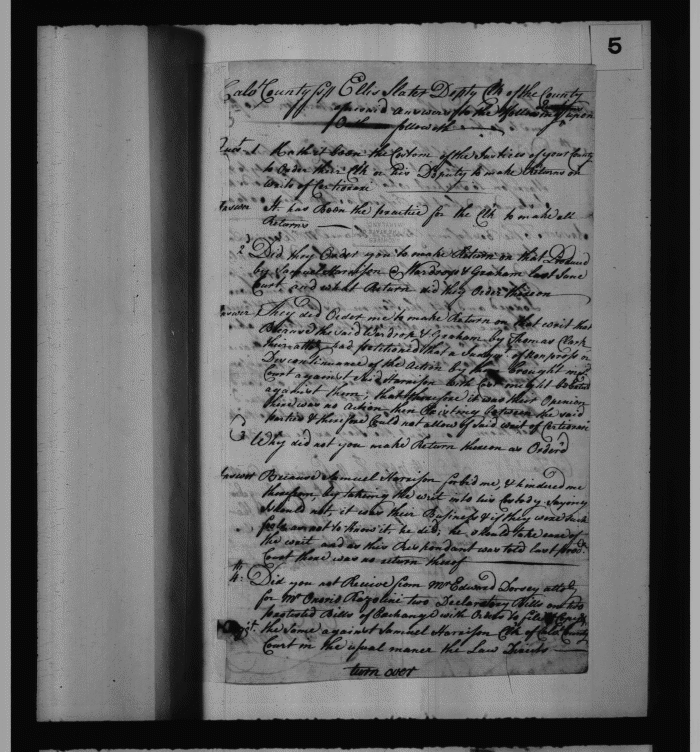 5
Calvt County ss Ellis Slater Depty Clk of the County
aforesaid answers to the following upon
Oath followeth
Quest. 1 Hath it Been the Custom of the Justices of your County
to Order their Clk or his Deputy to make Returns on
Writs of Certiorari
Answer It has Been the practice for the Clk to make all
Returns
2d Did they Order you to make Return on that Produced
by Samuel Harrison @ Wardrop & Graham last June
Court and what Return did they Order thereon
Answer They did Order me to make Return on that writ that
Because the said Wardrop & Graham by Thomas Clark
their had petitioned that a Judgt. of Nonpross or
Discontinuance of the Action by them brought in
Court against Said Harrison with Cost might be
against them; that therefore it was their Opinion
there was no Action then Existing Between the said
parties & therefore Could not allow of said writ of Certiorari
Why did not you make Return thereon as Order'd
Answer Because Samuel Harrison forbid me, & hindered me
therefrom by taking the writ into his Custody Saying
I should not, it was their Business & if they were such
fools as not to know it, he did, he should take care of
the writ and as this Respondent was told last
Court there was no return thereof
4: Did you not Receive from Mr Edward Dorsey
for Mr Onorio Razolini two Declaratory Bills on two
protested Bills of Exchange with Orders to file
the Same against Samuel Harrison Clk of Calvt County
Court in the usual maner the Law Directs
turn over